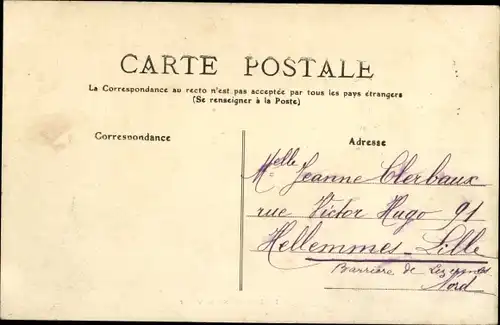 CARTE POSTALE
La Correspondance au recto n'est pas acceptée par tous les pays étrangers
(Se renseigner à la Poste)
Correspondance
Adresse
Melle Jeanne Clerbaux
rue Victor Hugo 91
Hellemmes-Lille
Barrière de
Nord